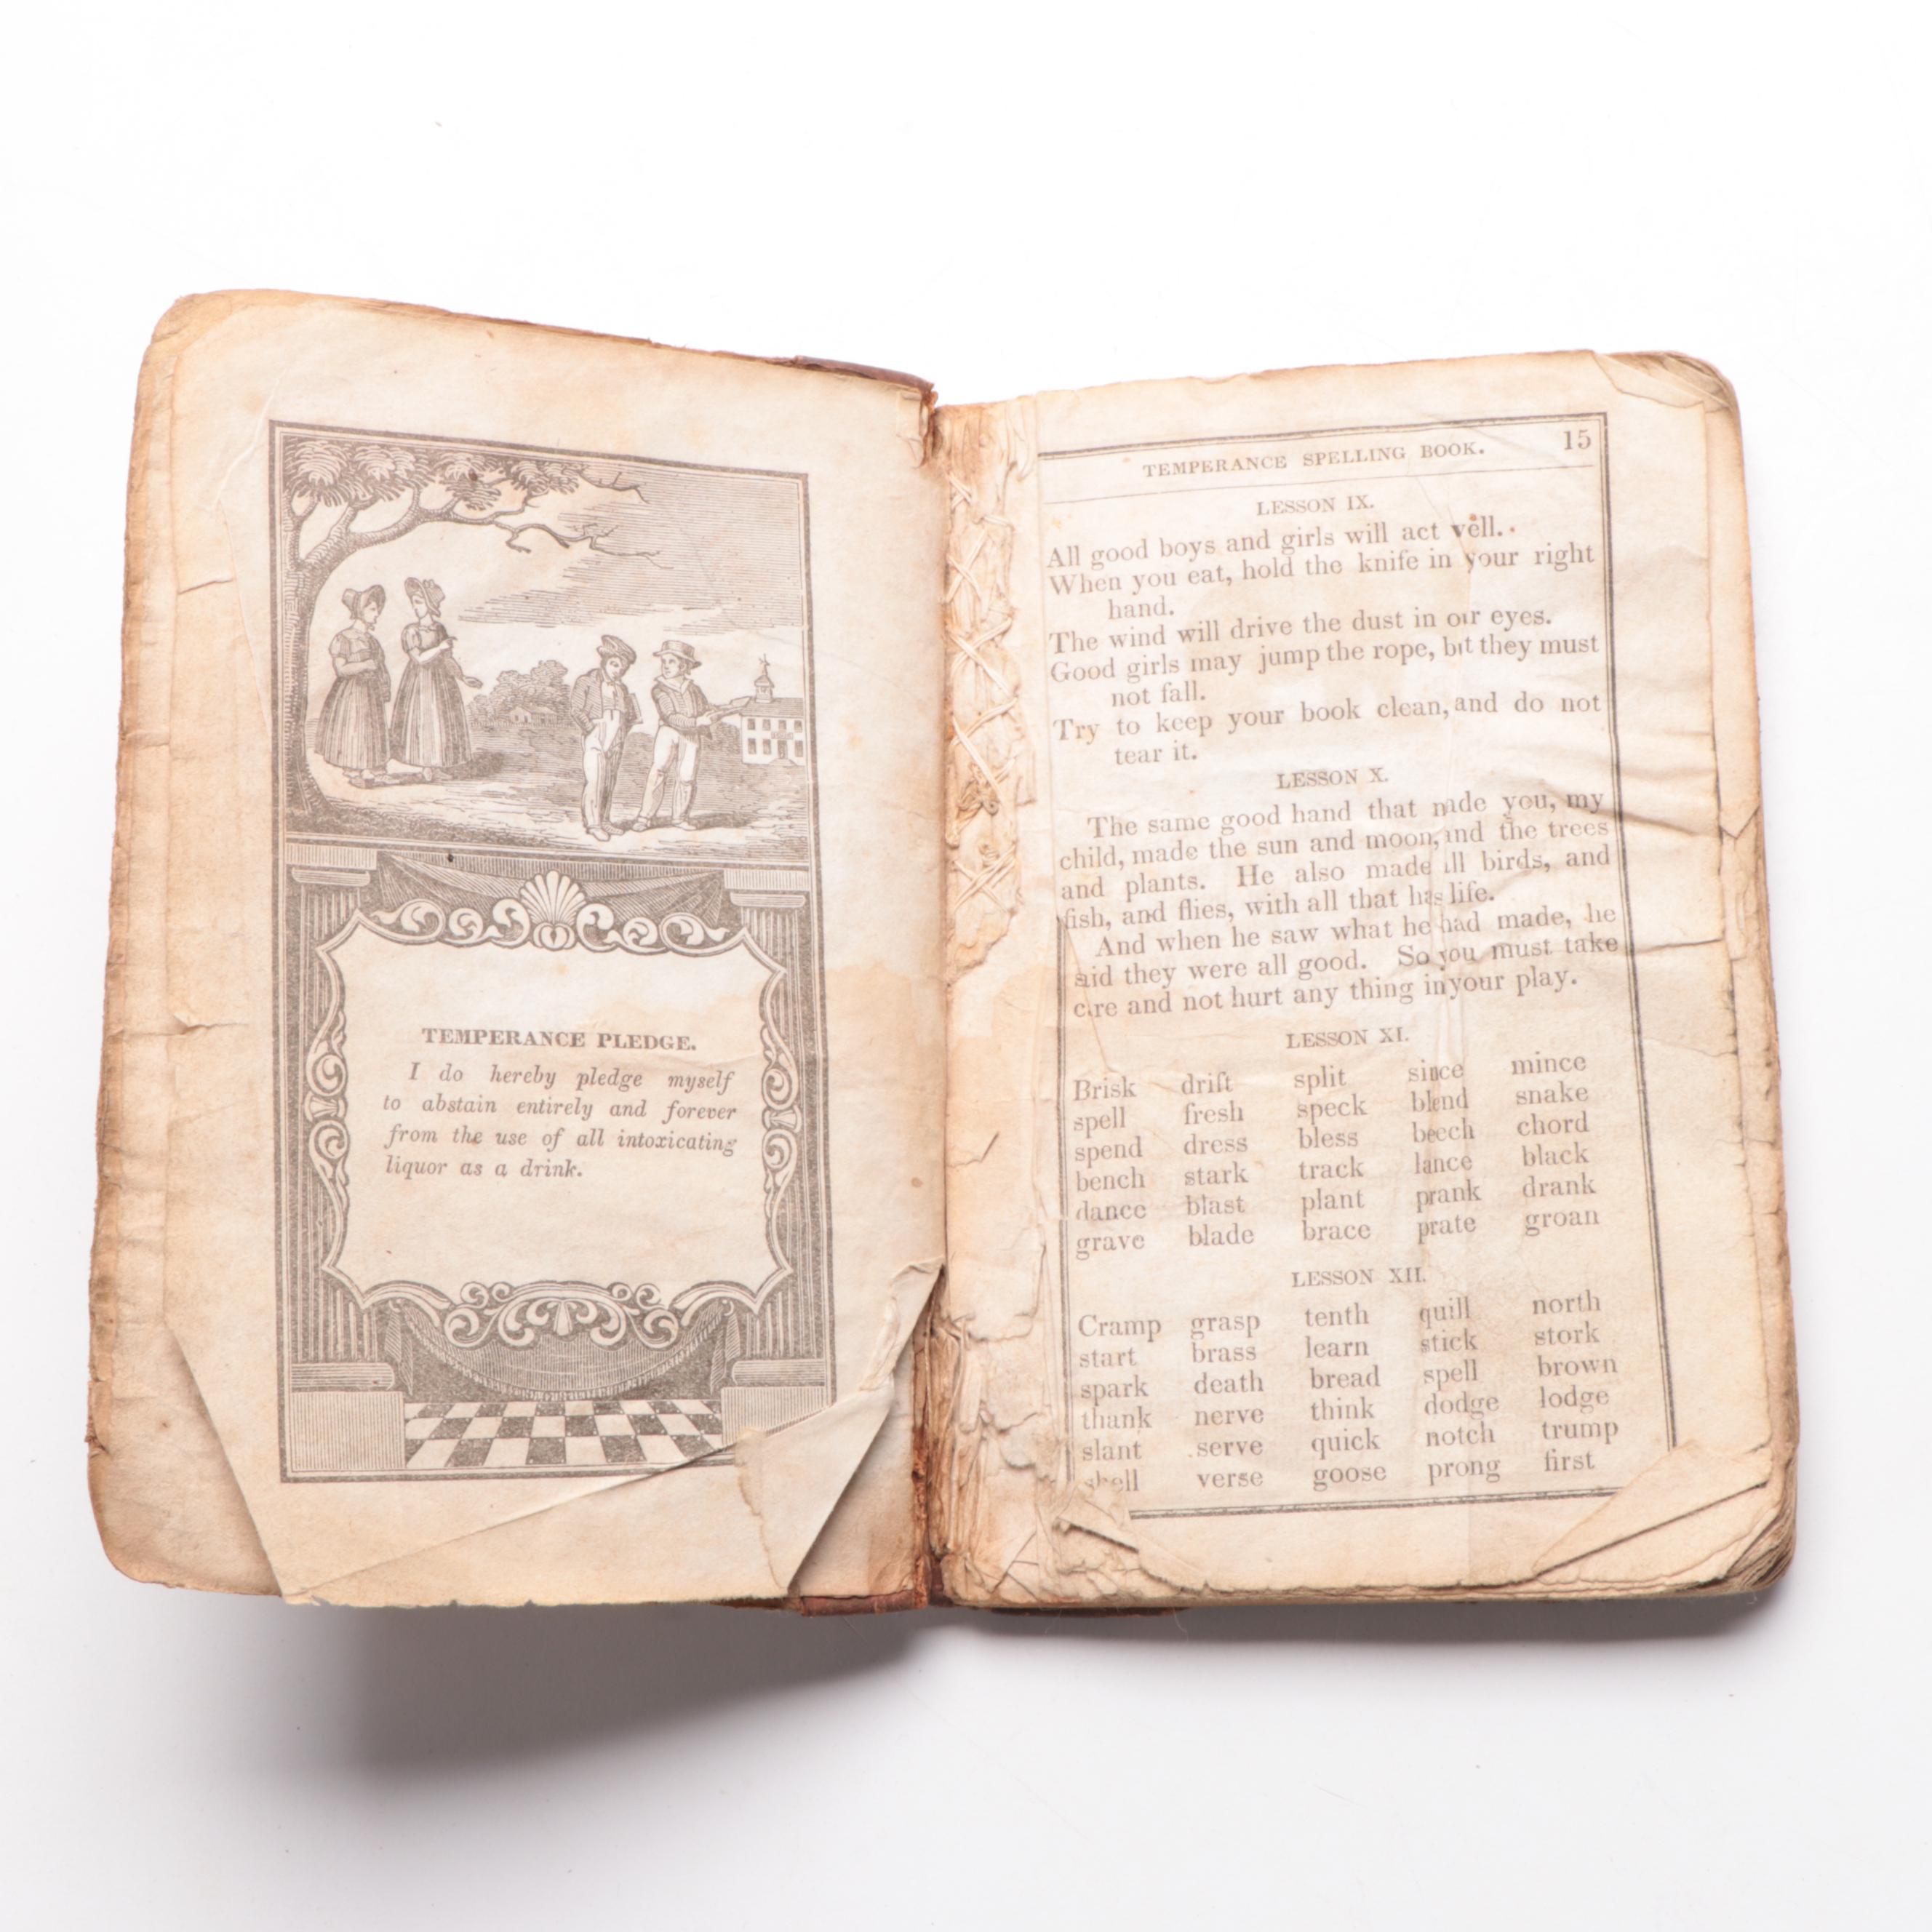 TEMPERANCE PLEDGE.
I do hereby pledge myself
to abstain entirely and forever
from the use of all intoxicating
liquor as a drink.
TEMPERANCE SPELLING BOOK. 15
LESSON IX.
All good boys and girls will act well.
When you eat, hold the knife in your right
hand.
The wind will drive the dust in our eyes.
Good girls may jump the rope, but they must
not fall.
Try to keep your book clean, and do not
tear it.
LESSON X.
The same good hand that made you, my
child, made the sun and moon, and the trees
and plants. He also made all birds, and
fish, and flies, with all that has life.
And when he saw what he had made, he
said they were all good. So you must take
care and not hurt any thing in your play.
LESSON XI.
Brisk drift split since mince
spell fresh speck blend snake
spend dress bless beech chord
bench stark track lance black
dance blast plant prank drank
grave blade brace prate groan
LESSON XII.
Cramp grasp tenth quill north
start brass learn stick stork
spark death bread spell brown
thank nerve think dodge lodge
slant serve quick notch trump
shell verse goose prong first